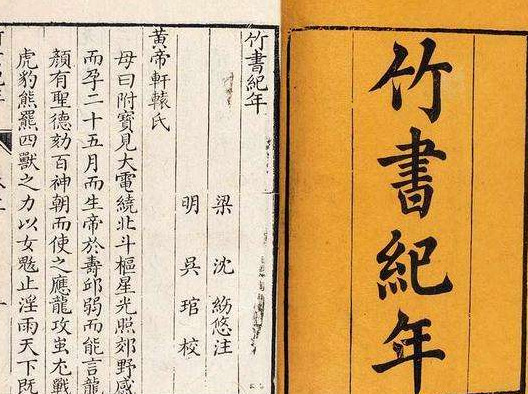 竹書紀年
竹書紀年
梁 沈 紡悠注
明 吳 琯 校
黃帝軒轅氏
母曰附寶見大電繞北斗樞星光照郊野感
而孕二十五月而生帝於壽邱弱而能言龍
顏有聖德劾百神朝而使之應龍攻蚩尤戰
虎豹熊羆四獸之力以女魃止淫雨天下既